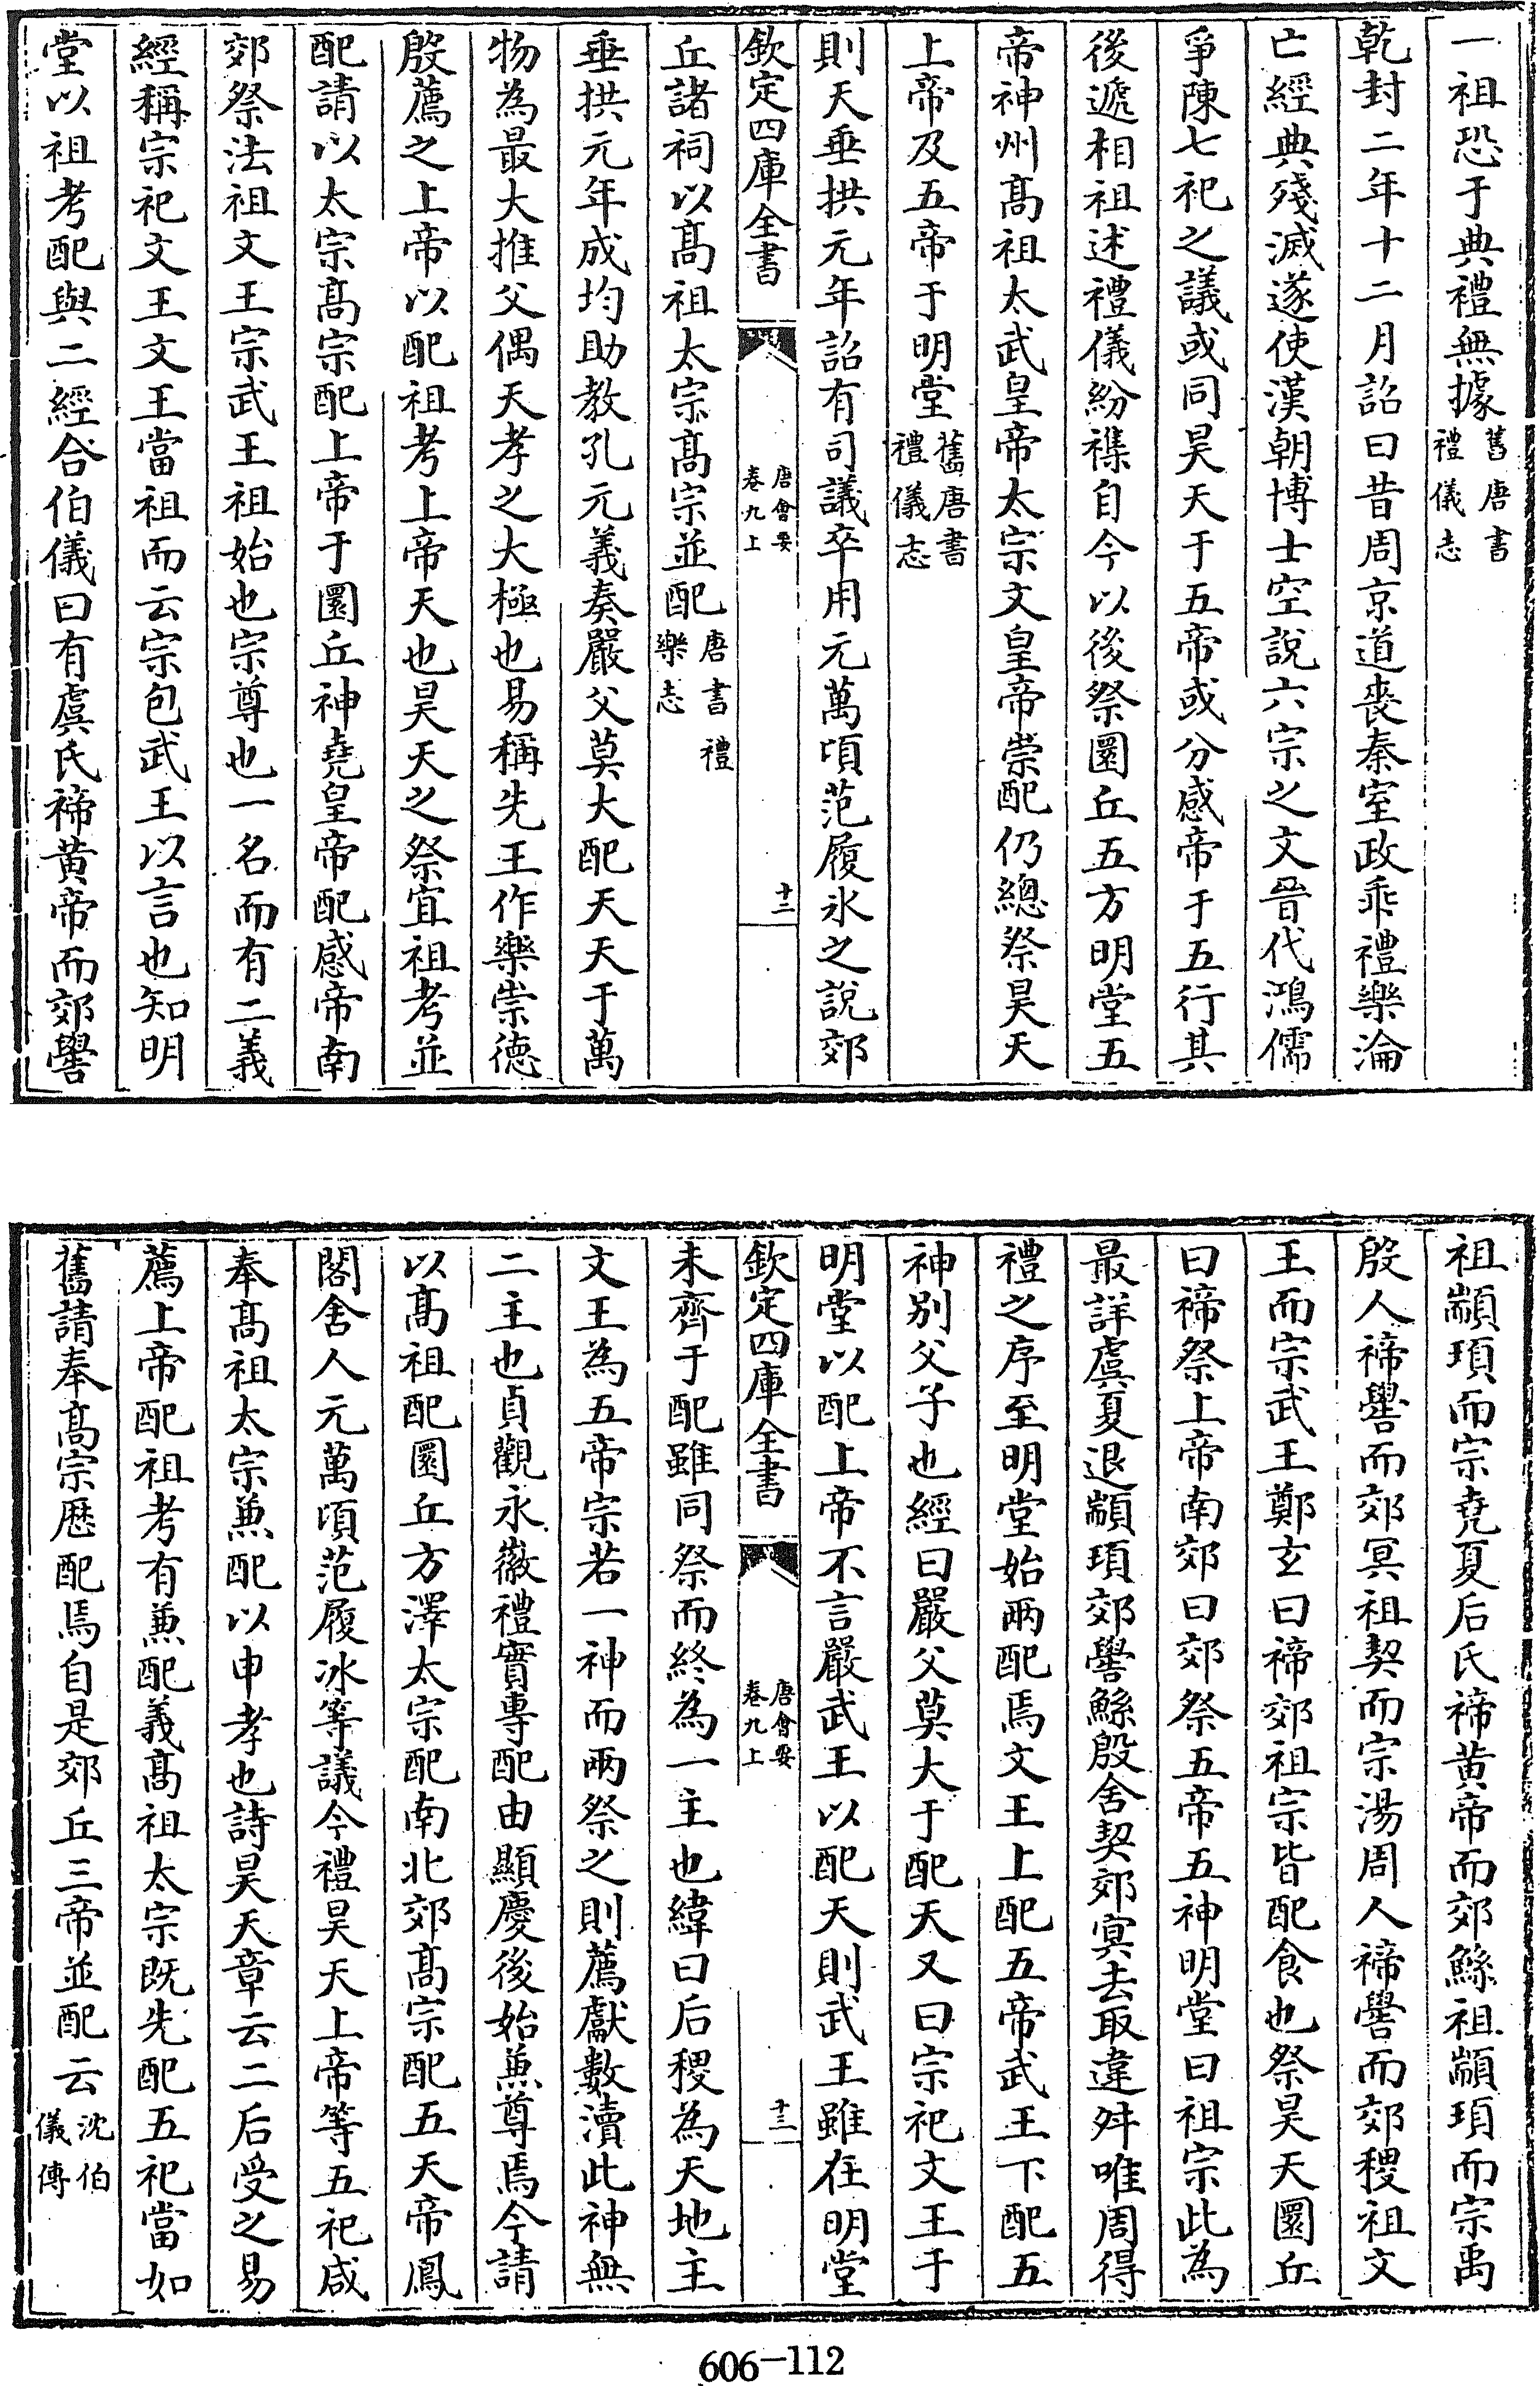 一祖恐于典禮無據舊唐書禮儀志
乾封二年十二月詔曰昔周京道喪秦室政乖禮樂淪
亡經典殘滅遂使漢朝博士空說六宗之文晉代鴻儒
爭陳七祀之議或同昊天于五帝或分感帝于五行其
後遞相祖述禮儀紛襍自今以後祭圜丘五方明堂五
帝神州髙祖太武皇帝太宗文皇帝崇配仍總祭昊天
上帝及五帝于明堂舊唐書禮儀志
則天垂拱元年詔有司議卒用元萬頃范履氷之說郊
欽定四庫全書
唐會要
卷九上
十二
丘諸祠以髙祖太宗髙宗並配唐書禮樂志
垂拱元年成均助教孔元義奏嚴父莫大配天天于萬
物為最大推父偶天孝之大極也易稱先王作樂崇德
殷薦之上帝以配祖考上帝天也昊天之祭宜祖考並
配請以太宗髙宗配上帝于圜丘神堯皇帝配感帝南
郊祭法祖文王宗武王祖始也宗尊也一名而有二義
經稱宗祀文王文王當祖而云宗包武王以言也知明
堂以祖考配與二經合伯儀曰有虞氏禘黄帝而郊嚳
祖顓頊而宗堯夏后氏禘黄帝而郊鯀祖顓頊而宗禹
殷人禘嚳而郊冥祖契而宗湯周人禘嚳而郊稷祖文
王而宗武王鄭玄曰禘郊祖宗皆配食也祭昊天圜丘
曰禘祭上帝南郊曰郊祭五帝五神明堂曰祖宗此為
最詳虞夏退顓頊郊嚳鯀殷舍契郊冥去取違舛唯周得
禮之序至明堂始兩配焉文王上配五帝武王下配五
神别父子也經曰嚴父莫大于配天又曰宗祀文王于
明堂以配上帝不言嚴武王以配天則武王雖在明堂
欽定四庫全書
唐會要
卷九上
十三
未齊于配雖同祭而終為一主也緯曰后稷為天地主
文王為五帝宗若一神而兩祭之則薦獻數瀆此神無
二主也貞觀永徽禮實專配由顯慶後始兼尊焉今請
以髙祖配圜丘方澤太宗配南北郊髙宗配五天帝鳳
閣舍人元萬頃范履冰等議今禮昊天上帝等五祀咸
奉髙祖太宗兼配以申孝也詩昊天章云二后受之易
薦上帝配祖考有兼配義髙祖太宗既先配五祀當如
舊請奉髙宗歴配焉自是郊丘三帝並配云沈伯儀傳
606-112